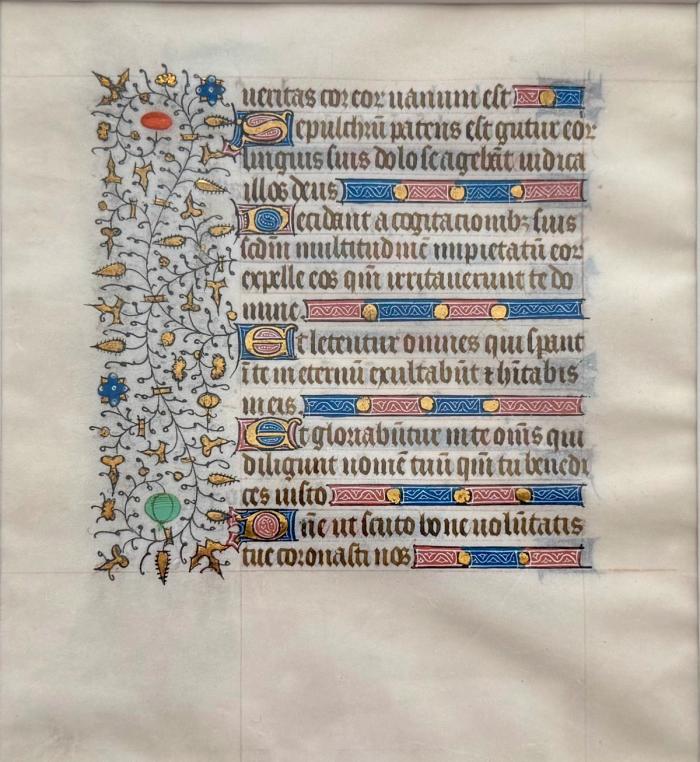 ueritas cor eor uanum est
Sepulchrū patens est gutur eor
linguis suis dolose agebāt iudica
illos deus
Decidant a cogitacionibz suis
scdm̄ multitudinē impietatū eor
expelle eos qm̄ irritauerunt te do
mine
Et letentur omnes qui spant
ī te in eternū exultabūt ⁊ hītabis
in eis
Et gloriabūtur in te om̄s qui
diligunt nomē tuū qm̄ tu benedi
ces iusto
Dn̄e ut scuto bone uolūtatis
tue coronasti nos